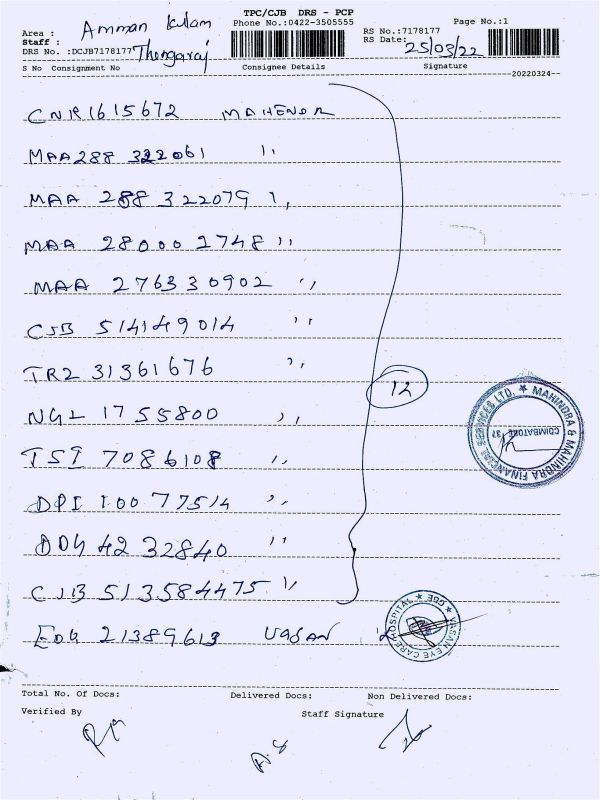 TPC/CJB DRS - PCP
Area : Amman kulam
Phone No.:0422-3505555
Page No.:1
Staff : Thangaraj
RS No.:7178177
DRS No. :DCJB7178177
RS Date: 25/03/22
S No Consignment No Consignee Details Signature
20220324
CNR1615672 MAHENDR
MAA288 322061 ''
MAA 288 322079 ''
MAA 28000 2748 ''
MAA 276330902 ''
CJB 514149014 ''
TRZ 31361676 ''
12
NGL 1755800 ''
MAHINDRA & MAHINDRA FINANCIAL SERVICES LTD.
COIMBATORE 37
TSI 7086108 ''
DPI 10077514 ''
DDG 4232840 ''
CJB 513584475 ''
EDG 21389613 VASAN
VASAN EYE CARE HOSPITAL CBE
Total No. Of Docs: Delivered Docs: Non Delivered Docs:
Verified By Staff Signature